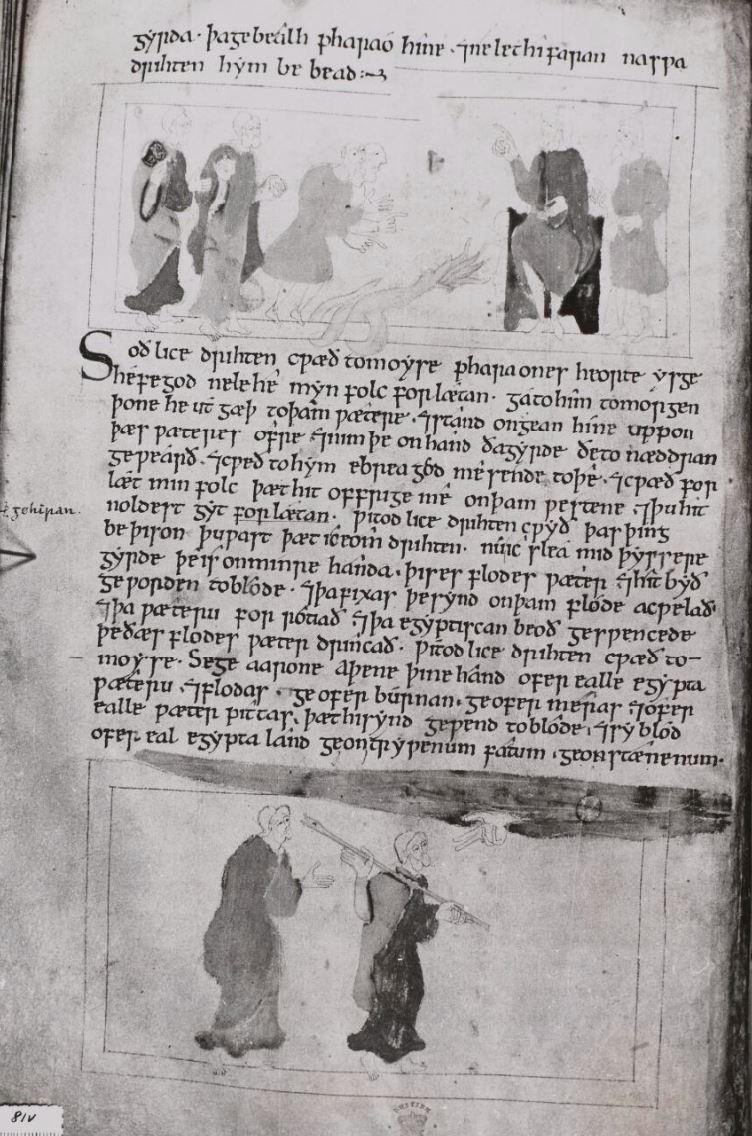 gyrda · þa gebealh pharaó hine · ⁊ nele thi faran na swa
drihten hym be bead :~
Soð lice drihten cwæð to moyse pharaones heorte ys ge
hefegod nele he mýn folc for lætan · ga to him to morgen
þone he út gæþ to þam wætere · ⁊ stand ongean hine uppon
þæs wæteres ofre ⁊ nim þe on hand ða gyrde ðe to næddran
gewearð · ⁊ cweð to hým ebrea gód me sende to þe · ⁊ cwæð for
læt min folc þæt hit offrige mé on þam westene ⁊ þu hit
gehiran ·
noldest gýt for lætan · Witod lice drihten cwyð þas þing
be þison þu wast þæt ic eom drihten · nú ic slea mid þyssere
gyrde þe is on minre handa · þises flodes wæter ⁊ hit byð
geworden to blóde · ⁊ þa fixas þe synd on þam flóde acwelað
⁊ þa wæteru for rótiað ⁊ þa egýptiscan beoð geswencede
þe ðæs flodes wæter drincað · Witod lice drihten cwæð to-
moyse · Sege aarone aþene þine hánd ofer ealle egypta
wæteru · ⁊ flodas · ge ofer búrnan · ge ofer mersas ⁊ ofer
ealle wæter pittas · þæt hi sýnd gewend to blóde · ⁊ sý blód
ofer eal egýpta land ge on trýwenum fatum · ge on stænenum ·
81v